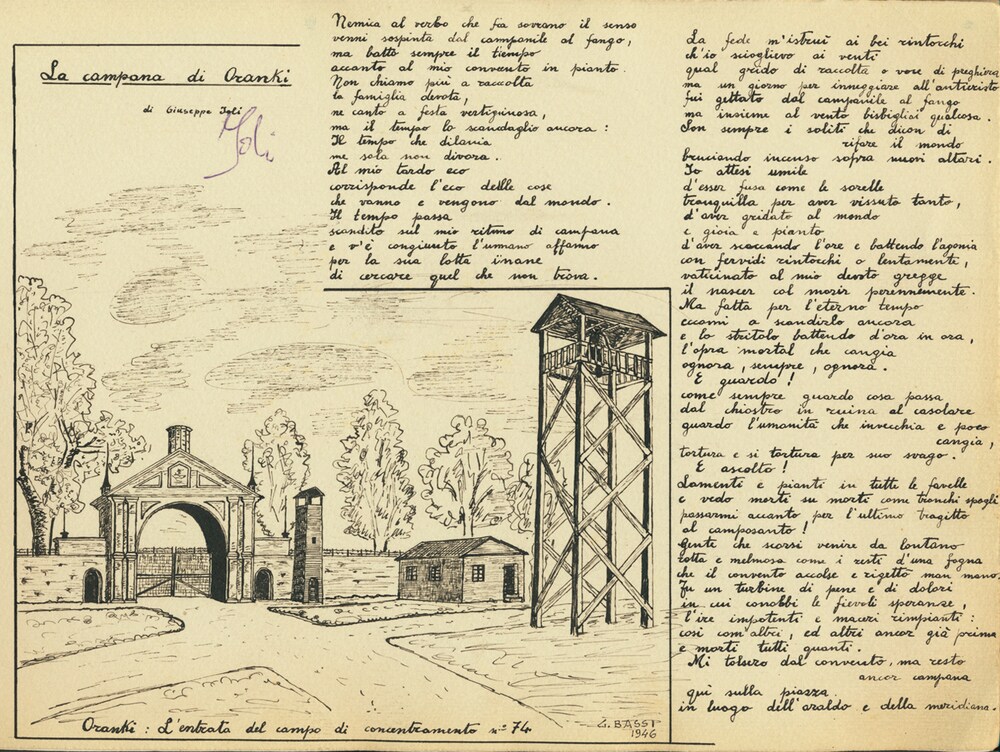 La campana di Oranki
di Giuseppe Ioli
Ioli
Nemica al verbo che fia sovrano il senso
venni sospinta dal campanile al fango,
ma batto sempre il tiempo
accanto al mio convento in pianto.
Non chiamo più a raccolta
la famiglia devota,
ne canto a festa vertiginosa,
ma il tempo lo scandaglio ancora:
Il tempo che dilania
me sola non divora.
Al mio tardo eco
corrisponde l'eco delle cose
che vanno e vengono dal mondo.
Il tempo passa
scandito sul mio ritmo di campana
e v'è congiunto l'umano affanno
per la sua lotta inane
di cercare quel che non trova.
La fede m'istruì ai bei rintocchi
ch'io scioglievo ai venti
qual grido di raccolta o voce di preghiera
ma un giorno per inneggiare all'anticristo
fui gettato dal campanile al fango
ma insieme al vento bisbigliai qualcosa.
Son sempre i soliti che dicon di
rifare il mondo
bruciando incenso sopra nuovi altari.
Io attesi umile
d'esser fusa come le sorelle
tranquilla per aver vissuto tanto,
d'aver gridato al mondo
e gioia e pianto
d'aver scoccando l'ore e battendo l'agonia
con fervidi rintocchi o lentamente,
vaticinato al mio devoto gregge
il nascer col morir perennemente.
Ma fatta per l'eterno tempo
eccomi a scandirlo ancora
e lo stritolo battendo d'ora in ora,
l'opra mortal che cangia
ognora, sempre, ognora.
E guardo!
come sempre guardo cosa passa
dal chiostro in ruina al casolare
guardo l'umanità che invecchia e poco
cangia,
tortura e si tortura per suo svago.
E ascolto!
Lamenti e pianti in tutte le favelle
e vedo morti su morti come tronchi spogli
passarmi accanto per l'ultimo tragitto
al camposanto!
Gente che scorsi venire da lontano
rotta e melmosa come i resti d'una fogna
che il convento accolse e rigettò man mano.
Fu un turbine di pene e di dolori
in cui conobbi le fievoli speranze,
l'ire impotenti e maceri rimpianti:
così com'altri, ed altri ancor già prima
e morti tutti quanti.
Mi tolsero dal convento, ma resto
ancor campana
qui sulla piazza
in luogo dell'araldo e della meridiana.
Oranki: L'entrata del campo di concentramento n° 74
G. BASSI
1946